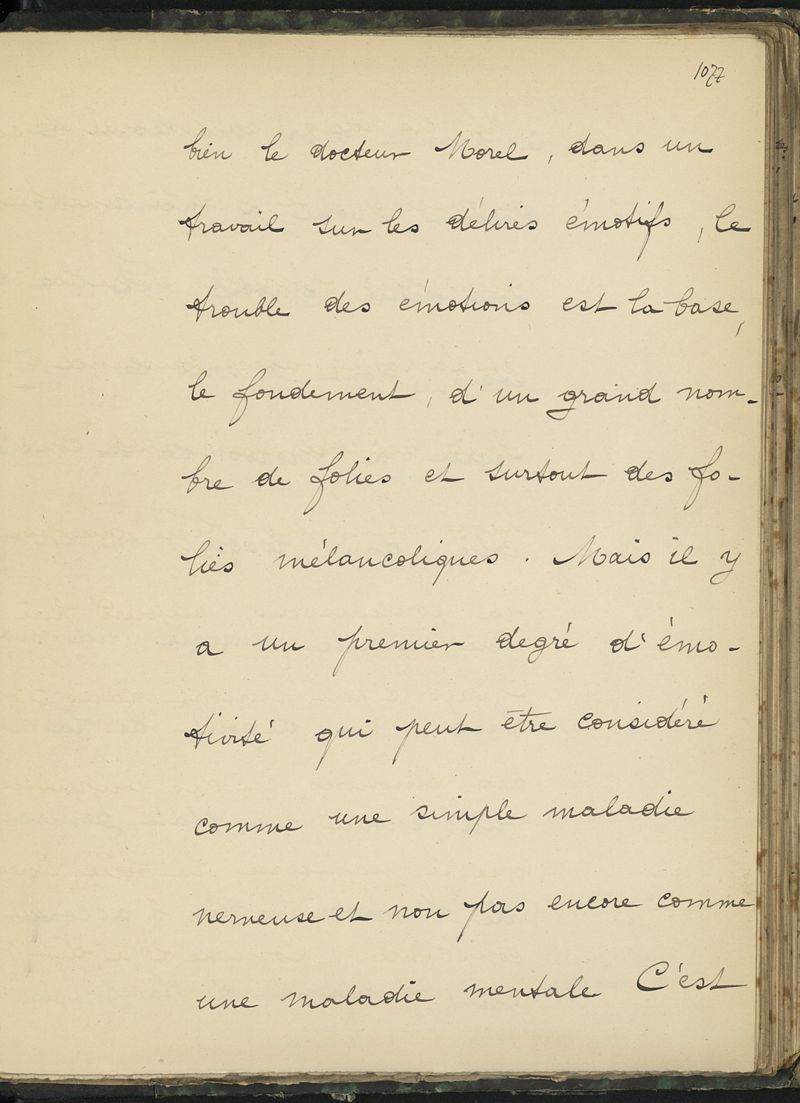 1077
bien le docteur Morel, dans un
travail sur les délires émotifs, le
trouble des émotions est la base,
le fondement, d'un grand nom-
bre de folies et surtout des fo-
lies mélancoliques. Mais il y
a un premier degré d'émo-
tivité qui peut etre considéré
comme une simple maladie
nerveuse et non pas encore comme
une maladie mentale C'est